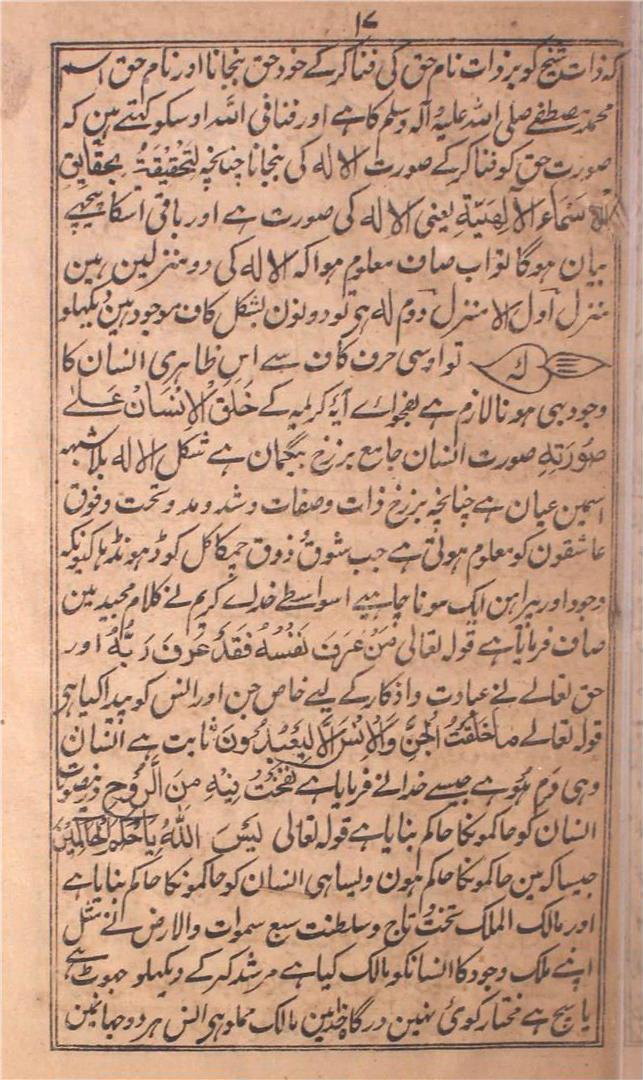 ۱۷
کہ ذات شیخ کو بر ذات نام حق کی فنا کرکے خود حق بنجانا اور نام حق اسم
محمد مصطفے صلی اللہ علیہ وآلہ وسلم کا ہے اور فنا فی اللہ اوسکو کہتے ہین کہ
صورت حق کو فنا کرکے صورت الا لہ کی بنجانا چنانچہ لتحقیقۃ بحقایق
سَمَاء الآلٰھیّۃ یعنی الا لہ کی صورت ہے اور باقی اسکا پیچھے
بیان ہوگا تو اب صاف معلوم ہوا کہ الا لہ کی دو منزلین ہین
منزل اول الا منزل دوم لہ ہی تو دونون بشکل کاف موجود ہین دیکھلو
لہ تو اوسی حرف کاف سے اس ظاہری انسان کا
وجود بہی ہونا لازم ہے بفحوائے آیۂ کریمہ کے خَلَقَ الاِنْسَانَ عَلٰے
صُوْرَتِہٖ صورت انسان جامع برزخ بیگمان ہے شکل الا لہ بلا شبہہ
اسمین عیان ہے چنانچہ برزخ ذات وصفات وشد ومد وتحت وفوق
عاشقون کو معلوم ہوتی ہے جب شوق ذوق چمکا کل کو ڈھونڈہا کیونکہ
وجود اور پیراہن ایک ہونا چاہیے اسواسطے خدائے کریم نے کلام مجید مین
صاف فرمایا ہے قولہ تعالی مَنْ عَرَفَ نَفْسَہُ فَقَدْ عَرَفَ رَبَّہُ اور
حق تعالے نے عبادت واذکار کے لیے خاص جن اور انس کو پیدا کیا ہی
قولہ تعالے مَا خَلَقْتُ الْجِنَّ وَالْاِنْسَ اِلَّا لِیَعْبُدُوْنَ ثابت ہے انسان
وہی دم ہُو ہے جیسے خدا نے فرمایا ہے نَفَخْتُ فِیْہِ مِنَ الرُّوْحِ
انسان کو حاکمونکا حاکم بنایا ہے قولہ تعالی لَیْسَ اللّٰہُ
جیسا کہ مین حاکمونکا حاکم ہون ویسا ہی انسان کو حاکمونکا حاکم بنایا ہے
اور مالک الملک تخت تاج وسلطنت سبع سموات والارض نے مثل
اپنے ملک وجود کا انسانکو مالک کیا ہے مرشد کرکے دیکھلو جہوٹ ہے
یا سچ ہے مختار کوئی نہین درگاہ خدا مین مالک مملوہی انس ہر دو جہانمین